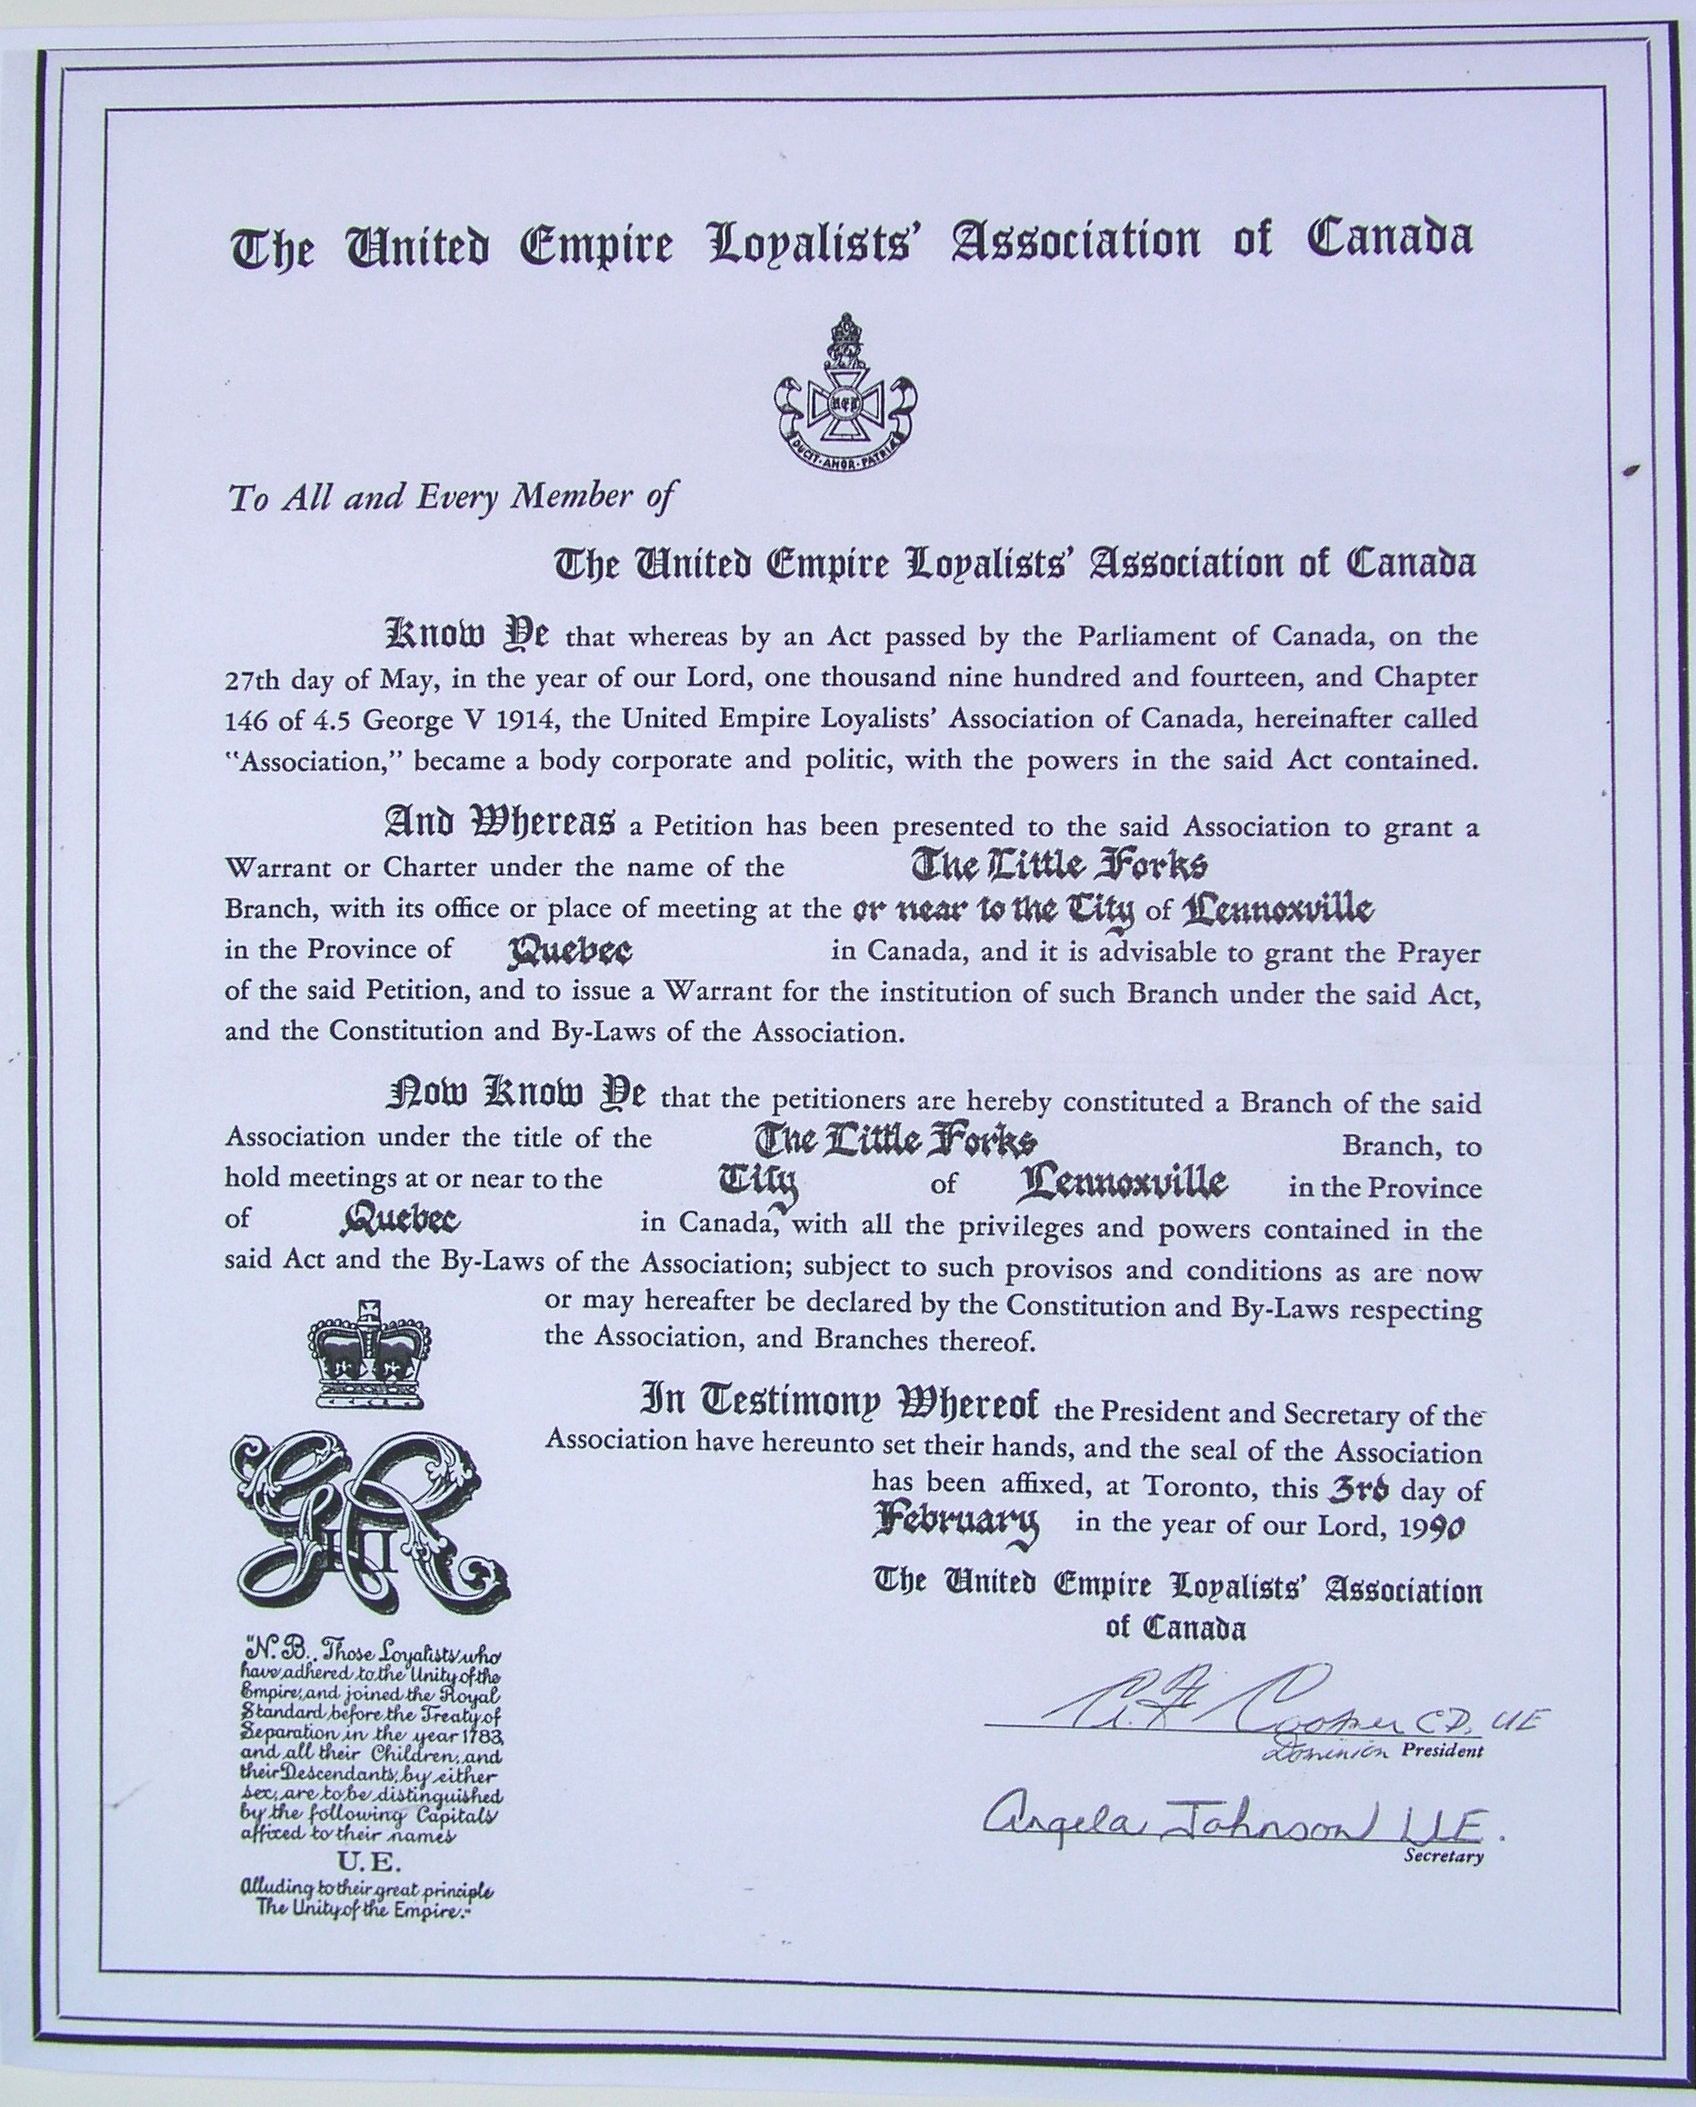 The United Empire Loyalists' Association of Canada
U E L
DUCIT·AMOR·PATRIÆ
To All and Every Member of
The United Empire Loyalists' Association of Canada
Know Ye that whereas by an Act passed by the Parliament of Canada, on the
27th day of May, in the year of our Lord, one thousand nine hundred and fourteen, and Chapter
146 of 4.5 George V 1914, the United Empire Loyalists' Association of Canada, hereinafter called
"Association," became a body corporate and politic, with the powers in the said Act contained.
And Whereas a Petition has been presented to the said Association to grant a
Warrant or Charter under the name of the The Little Forks
Branch, with its office or place of meeting at the or near to the City of Lennoxville
in the Province of Quebec in Canada, and it is advisable to grant the Prayer
of the said Petition, and to issue a Warrant for the institution of such Branch under the said Act,
and the Constitution and By-Laws of the Association.
Now Know Ye that the petitioners are hereby constituted a Branch of the said
Association under the title of the The Little Forks Branch, to
hold meetings at or near to the City of Lennoxville in the Province
of Quebec in Canada, with all the privileges and powers contained in the
said Act and the By-Laws of the Association; subject to such provisos and conditions as are now
or may hereafter be declared by the Constitution and By-Laws respecting
the Association, and Branches thereof.
In Testimony Whereof the President and Secretary of the
Association have hereunto set their hands, and the seal of the Association
has been affixed, at Toronto, this 3rd day of
February in the year of our Lord, 1990
The United Empire Loyalists' Association
of Canada
GR
III
"N.B., Those Loyalists who
have adhered to the Unity of the
Empire, and joined the Royal
Standard before the Treaty of
Separation in the year 1783,
and all their Children, and
their Descendants, by either
sex, are to be distinguished
by the following Capitals
affixed to their names
U.E.
Alluding to their great principle
The Unity of the Empire."
Cooper CD, UE
Dominion President
Angela Johnson UE.
Secretary